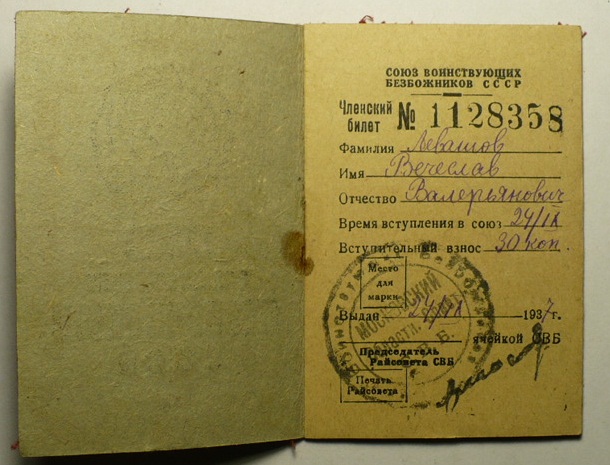 СОЮЗ ВОИНСТВУЮЩИХ
БЕЗБОЖНИКОВ СССР
Членский билет № 1128358
Фамилия Левашов
Имя Вечеслав
Отчество Валерьянович
Время вступления в союз 24/IX
Вступительный взнос 30 коп.
Место
для
марки
Выдан 24/IX 1937 г.
ячейкой СВБ
Председатель
Райсовета СВБ
Печать
Райсовета
МОСКОВСКИЙ